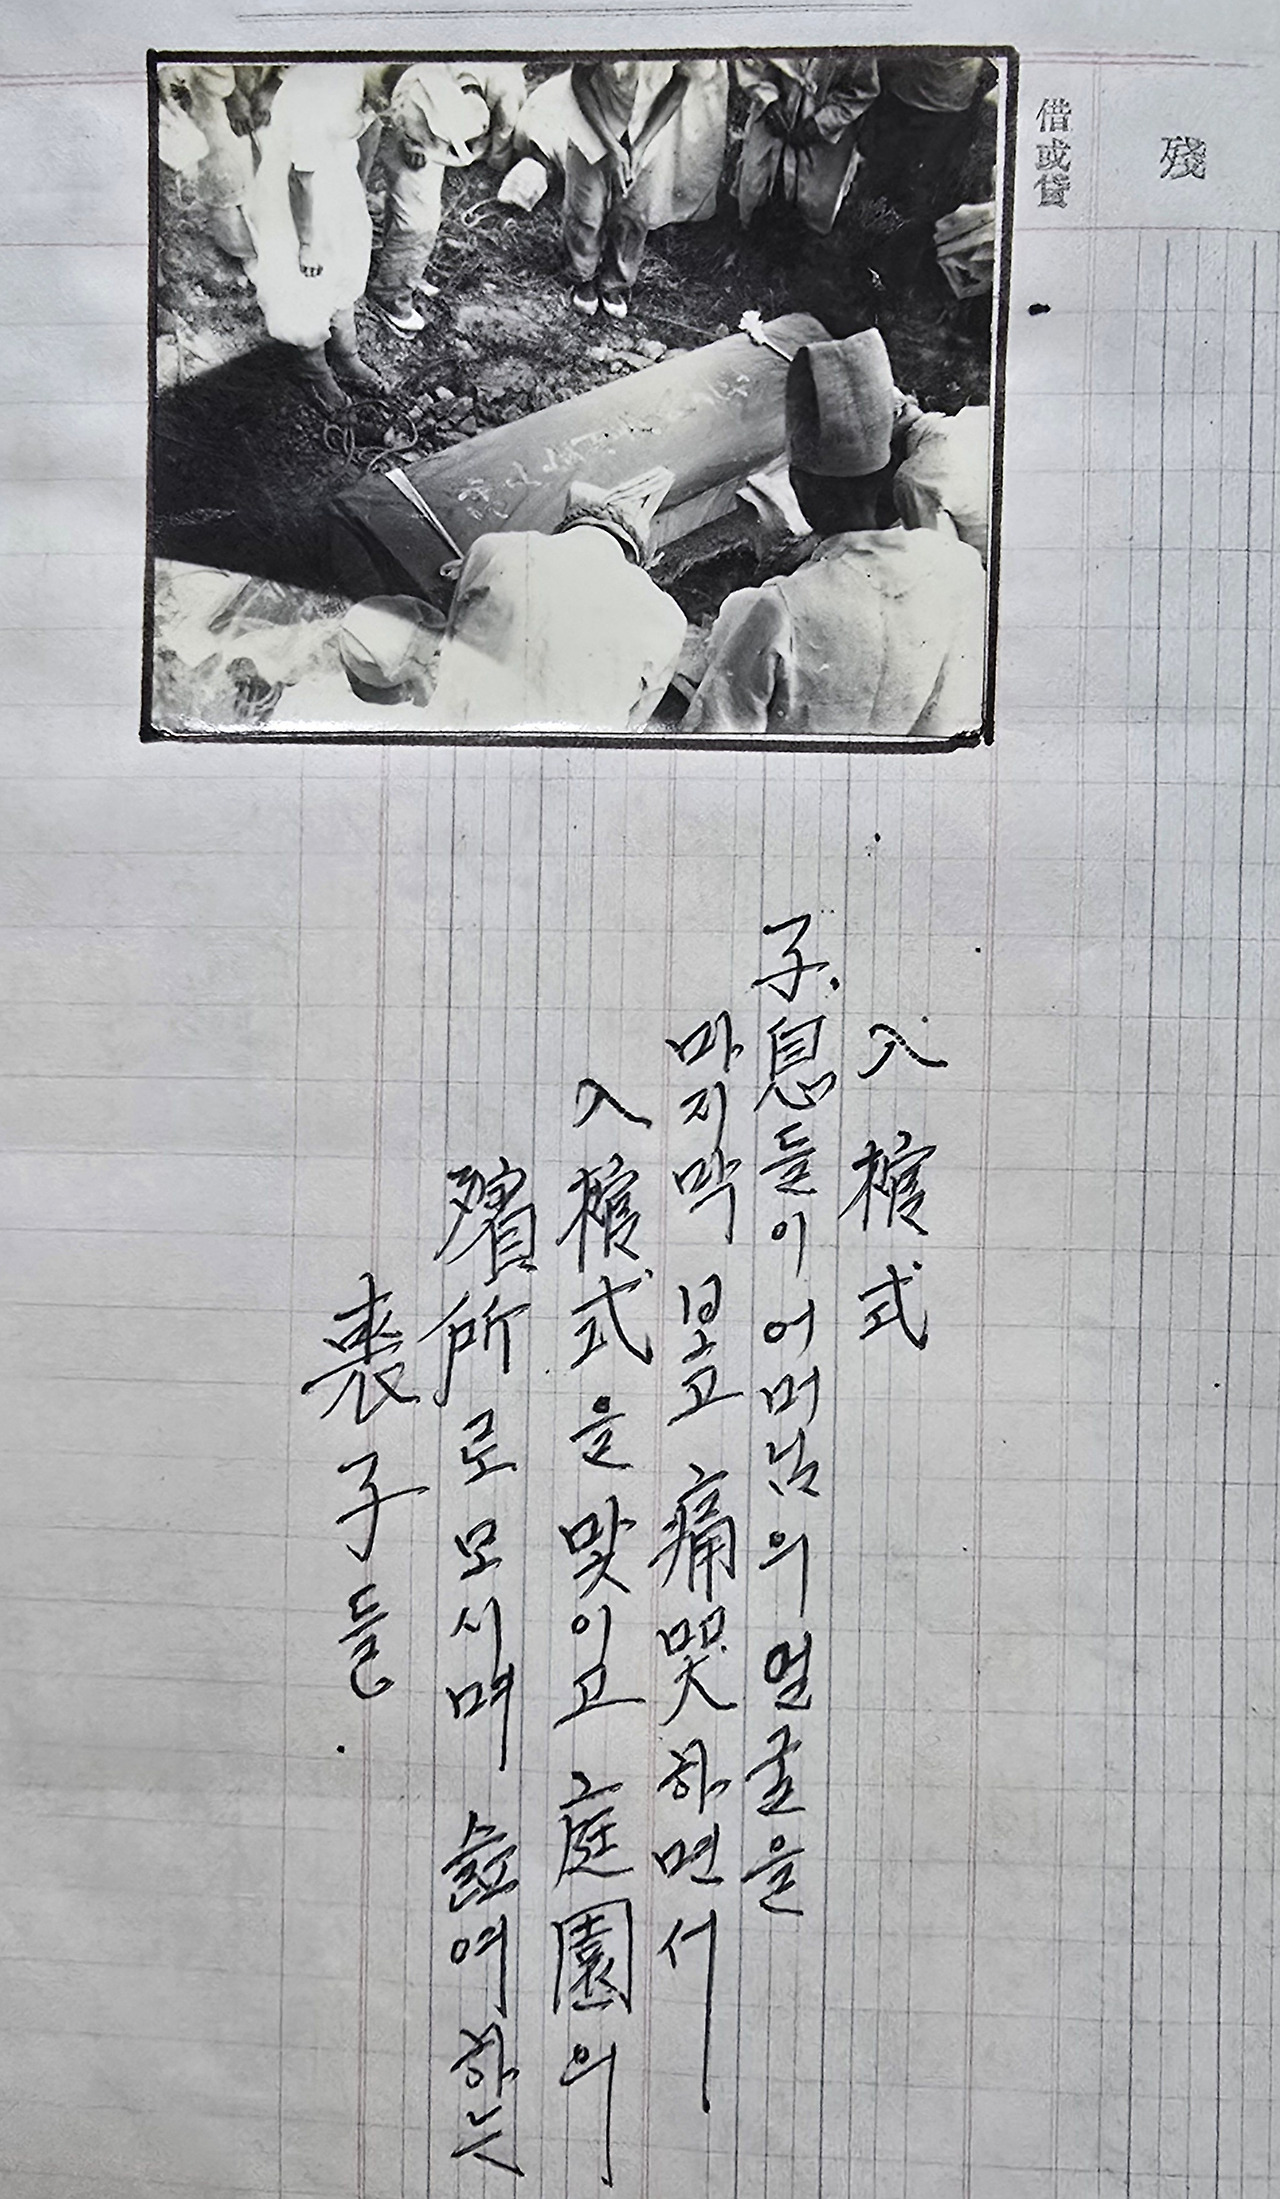 殘
借或貸
入棺式
子息들이 어머님의 얼굴을
마지막 보고 痛哭하면서
入棺式을 맞이고 庭園의
殯所로 모시며 슲여하는
喪子들.